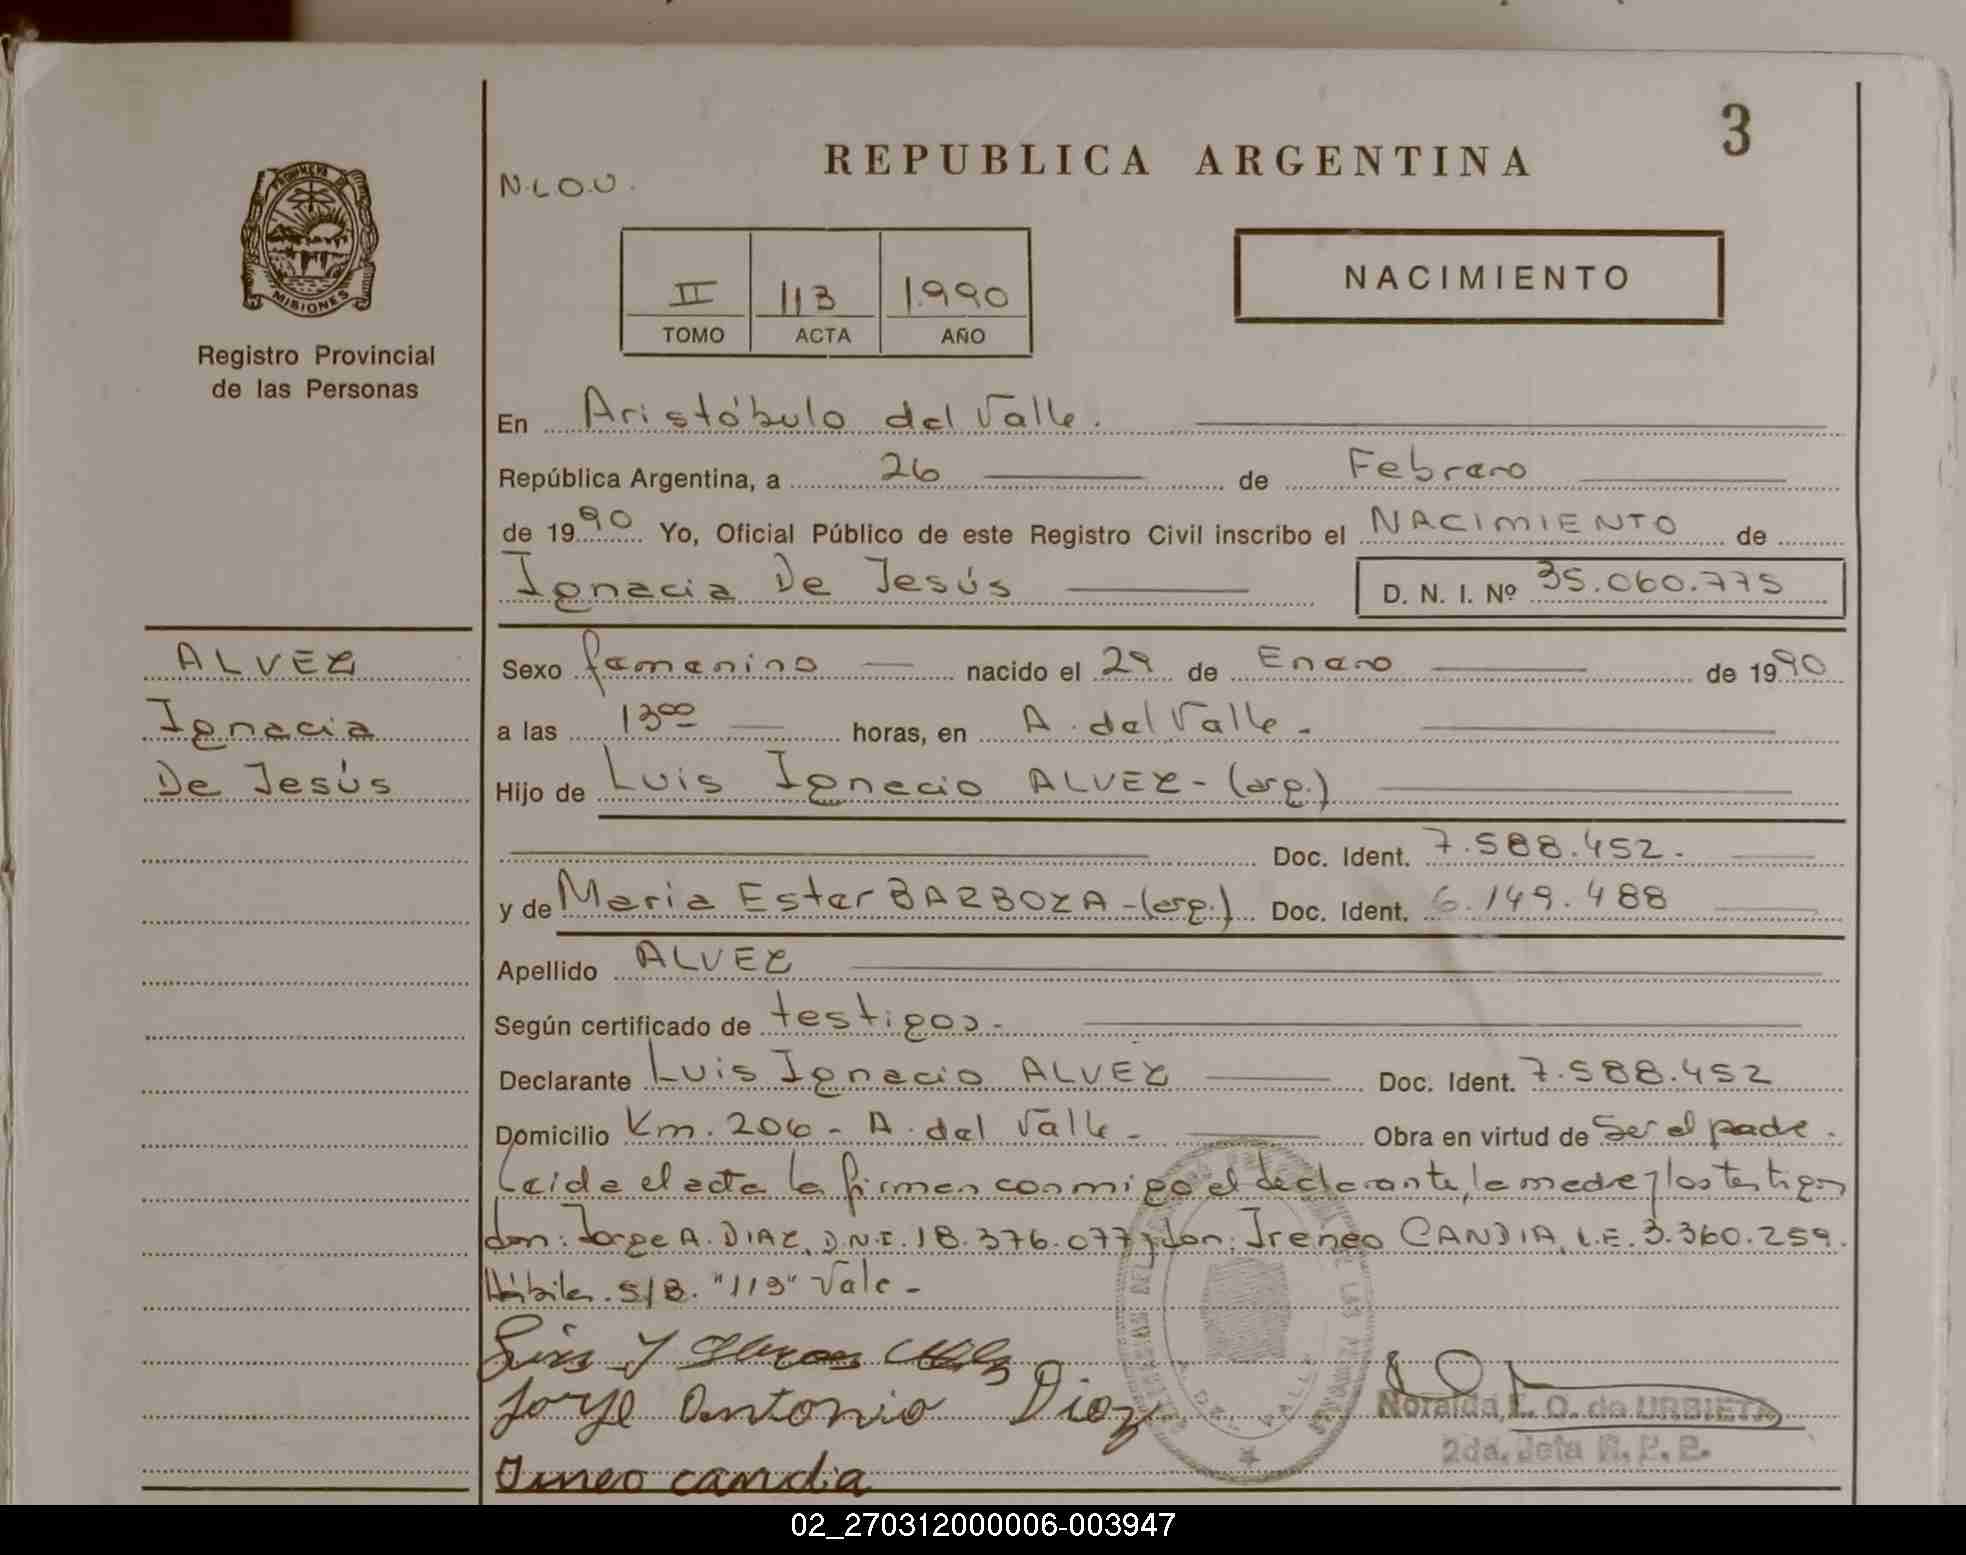 3
REPUBLICA ARGENTINA
N.L.O.U.
PROVINCIA DE
MISIONES
Registro Provincial
de las Personas
II 113 1.990
TOMO ACTA AÑO
NACIMIENTO
En Aristóbulo del Valle.
República Argentina, a 26 de Febrero
de 1990 Yo, Oficial Público de este Registro Civil inscribo el NACIMIENTO de
Ignacia De Jesús D. N. I. Nº 35.060.775
ALVEZ
Ignacia
De Jesús
Sexo femenino nacido el 29 de Enero de 1990
a las 13 00 horas, en A. del Valle.-
Hijo de Luis Ignacio ALVEZ-(arg.)
Doc. Ident. 7.588.452.
y de Maria Ester BARBOZA-(arg.) Doc. Ident. 6.149.488
Apellido ALVEZ
Según certificado de testigos.
Declarante Luis Ignacio ALVEZ Doc. Ident. 7.588.452
Domicilio Km. 206 - A. del Valle - Obra en virtud de ser el padre.
Leida el acta la firman conmigo el declarante, la madre y los testigos
don: Jorge A. DIAZ, D.N.I. 18.376.077 y don: Ireneo CANDIA, L.E. 3.360.259.
Hábiles. S/B. "113" Vale-
Luis Y
Jorge Antonio Diaz
Ireneo candia
Noralda, E. O. de URBIETA
2da. Jefa R. P. P.
02_270312000006-003947